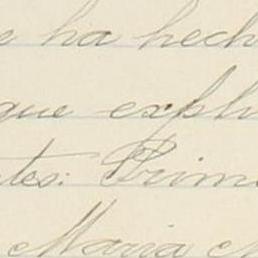 e ha hech
que expli
tes: Prim
Maria M